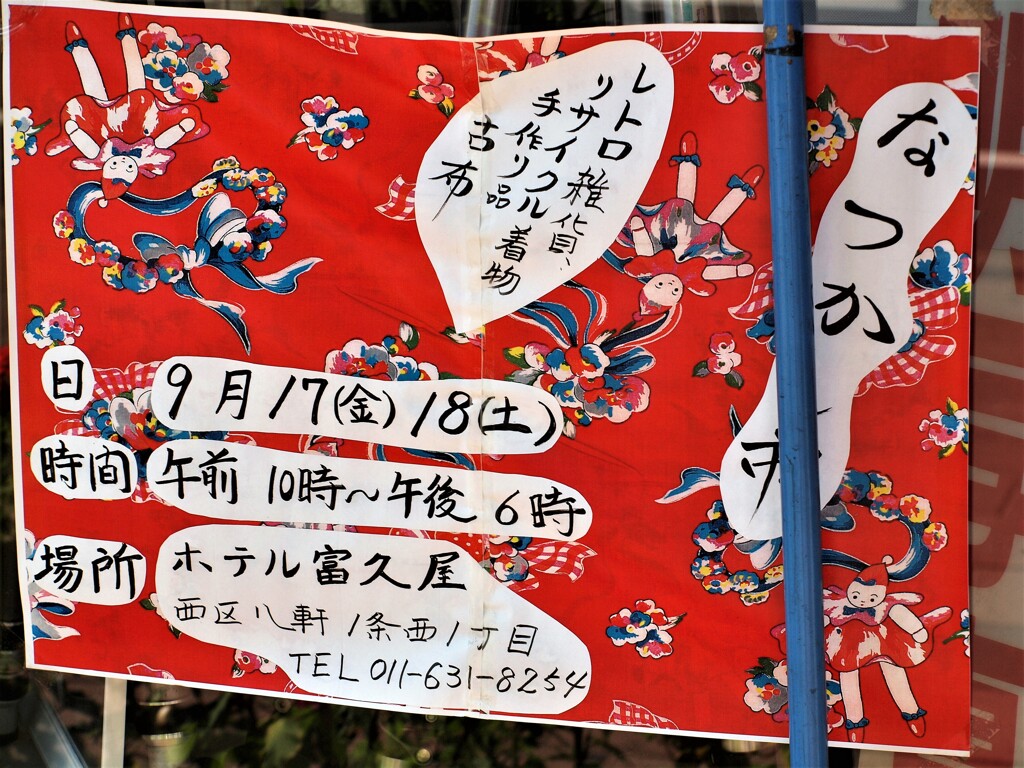 なつか
市
レトロ雑貨、
リサイクル着物
手作り品
古布
日 9月17(金)18(土)
時間 午前10時~午後6時
場所 ホテル富久屋
西区八軒1条西1丁目
TEL 011-631-8254